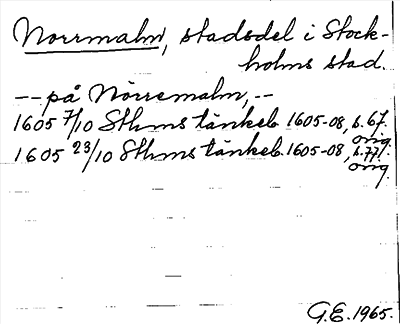 Norrmalm, stadsdel i Stock-
holms stad.
-- på Norremalm, --
1605 7/10 Sthms tänkeb. 1605-08, s. 67. orig.
1605 23/10 Sthms tänkeb. 1605-08, s. 77. orig.
G.E. 1965.